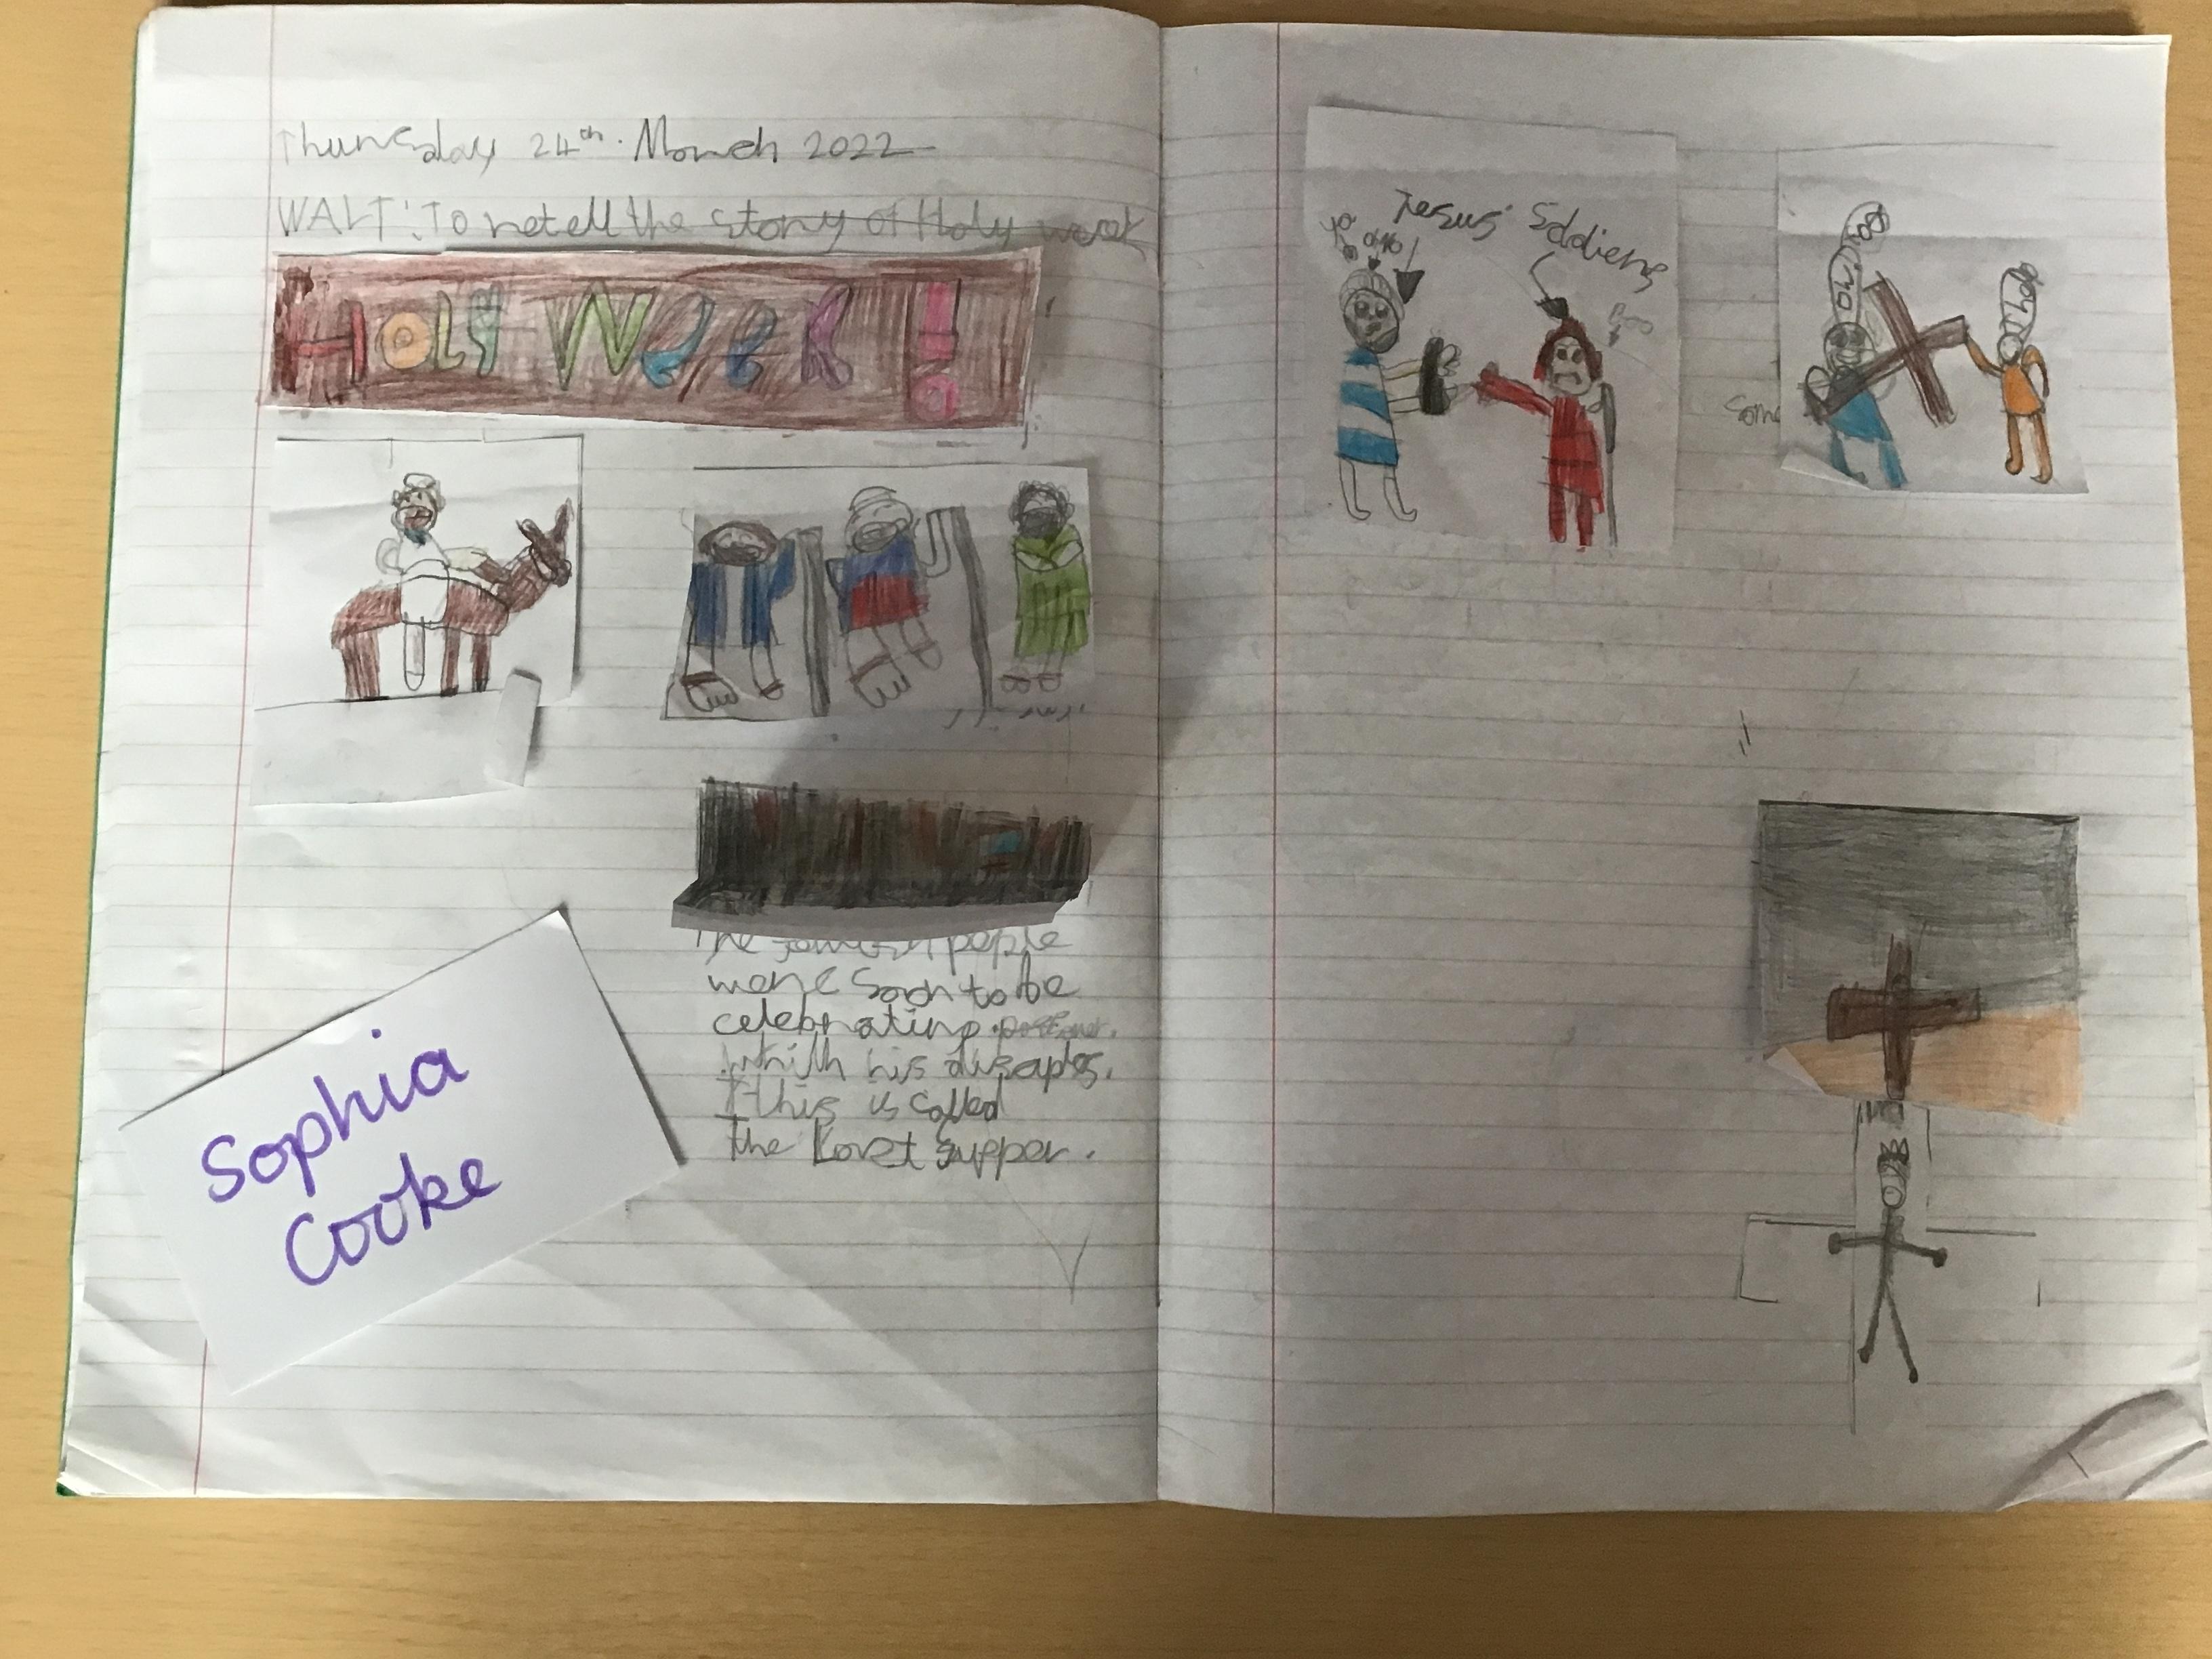 Thursday 24th March 2022
WALT: To retell the story of Holy week
HOLY WEEK!
The people
were soon to be
celebrating
whith his
this is called
the Last Supper.
Sophia
Cooke
Jesus Soldiers
Boo
Some
ow!
help